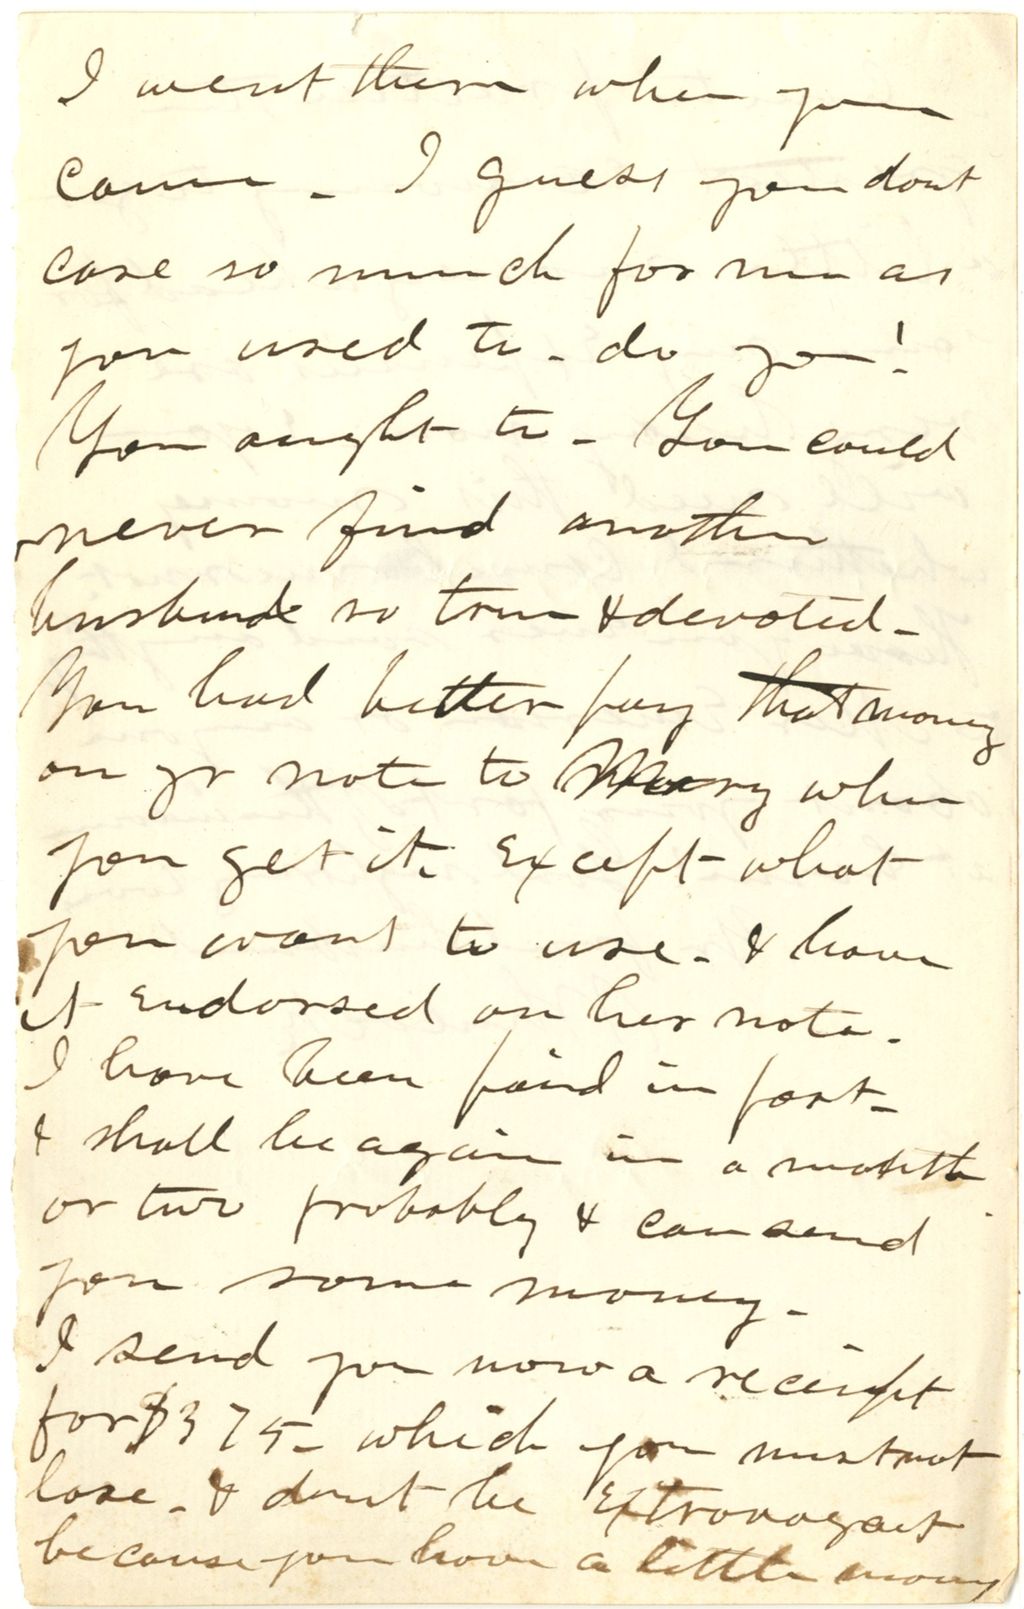 I went there when you
came - I guess you dont
care so much for me as
you used to - do you!
You aught to - You could
never find another
husband so true & devoted -
You had better pay that money
on yr note to Mary when
you get it. Except what
you want to use - & have
it Endorsed on her note.
I have been paid in part -
& shall be again in a month
or two probably & can send
you some money -
I send you now a receipt
for $375 - which you must not
lose - & dont be Extravagant
because you have a little money